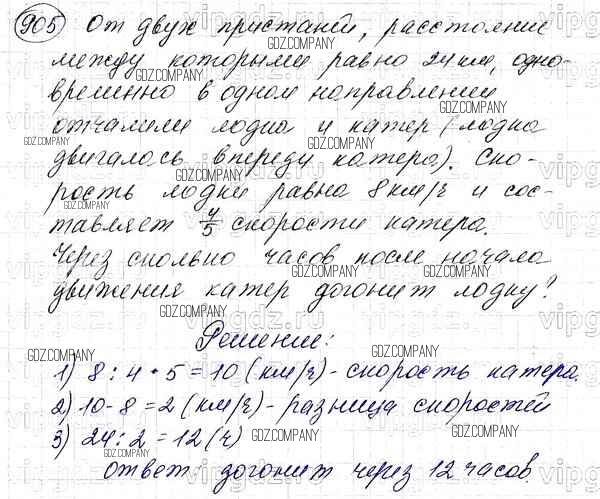 905 От двух пристаней, расстояние
между которыми равно 24 км, одно-
временно в одном направлении
отчалили лодка и катер (лодка
двигалась впереди катера). Ско-
рость лодки равна 8 км/ч и сос-
тавляет 4/5 скорости катера.
Через сколько часов после начала
движения катер догонит лодку?
Решение:
1) 8 : 4 • 5 = 10 (км/ч) - скорость катера.
2) 10 - 8 = 2 (км/ч) - разница скоростей
3) 24 : 2 = 12 (ч)
Ответ: догонит через 12 часов.
GDZ.COMPANY
vipgdz.ru